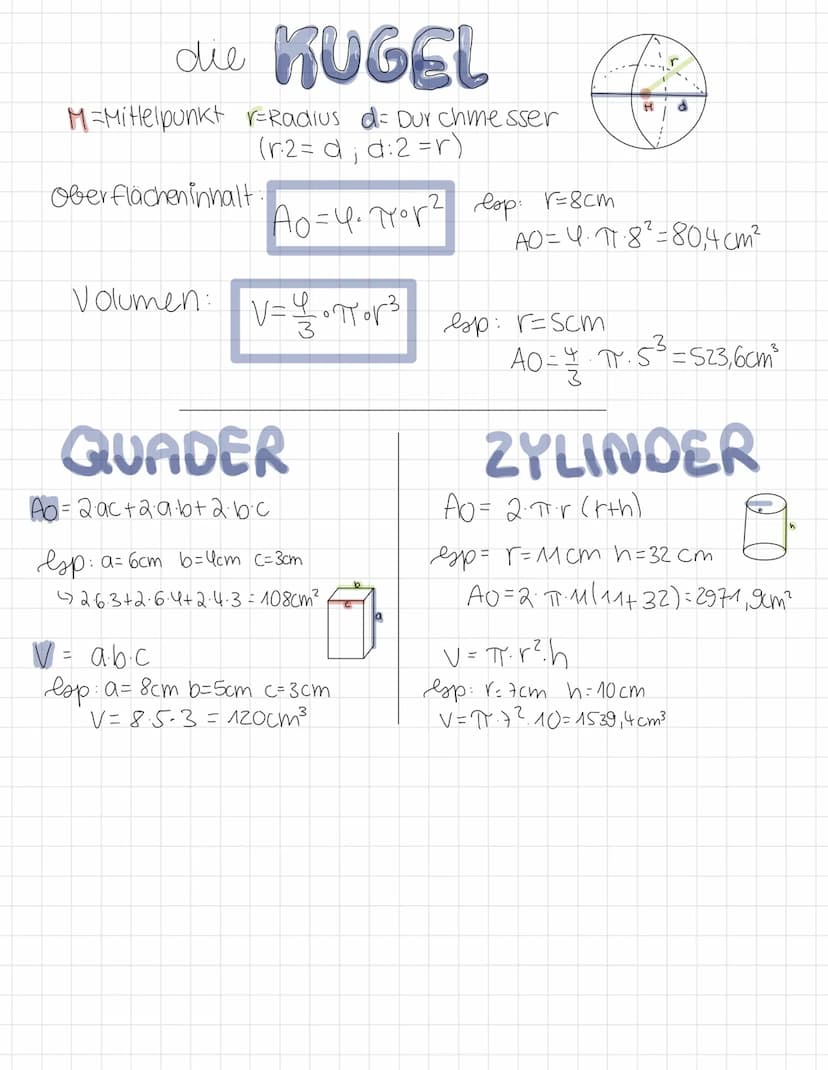 die KUGEL
M=Mittelpunkt r=Radius d=Durchmesser
(r·2=d; d:2=r)
r
M d
Oberflächeninhalt: A_O=4·π·r² bsp: r=8cm
AO=4·π·8²=80,4cm²
Volumen: V=4/3·π·r³ bsp: r=5cm
AO=4/3·π·5³=523,6cm³
QUADER
AO=2·ac+2·a·b+2·b·c
bsp: a=6cm b=4cm c=3cm
↳2·6·3+2·6·4+2·4·3=108cm²
b
c
a
V = a·b·c
bsp: a=8cm b=5cm c=3cm
V=8·5·3=120cm³
ZYLINDER
AO= 2·π·r(r+h)
r
h
bsp= r=11cm h=32cm
AO=2·π·11(11+32)=2971,9cm²
V=π·r²·h
bsp: r=7cm h=10cm
V=π·7²·10=1539,4cm³